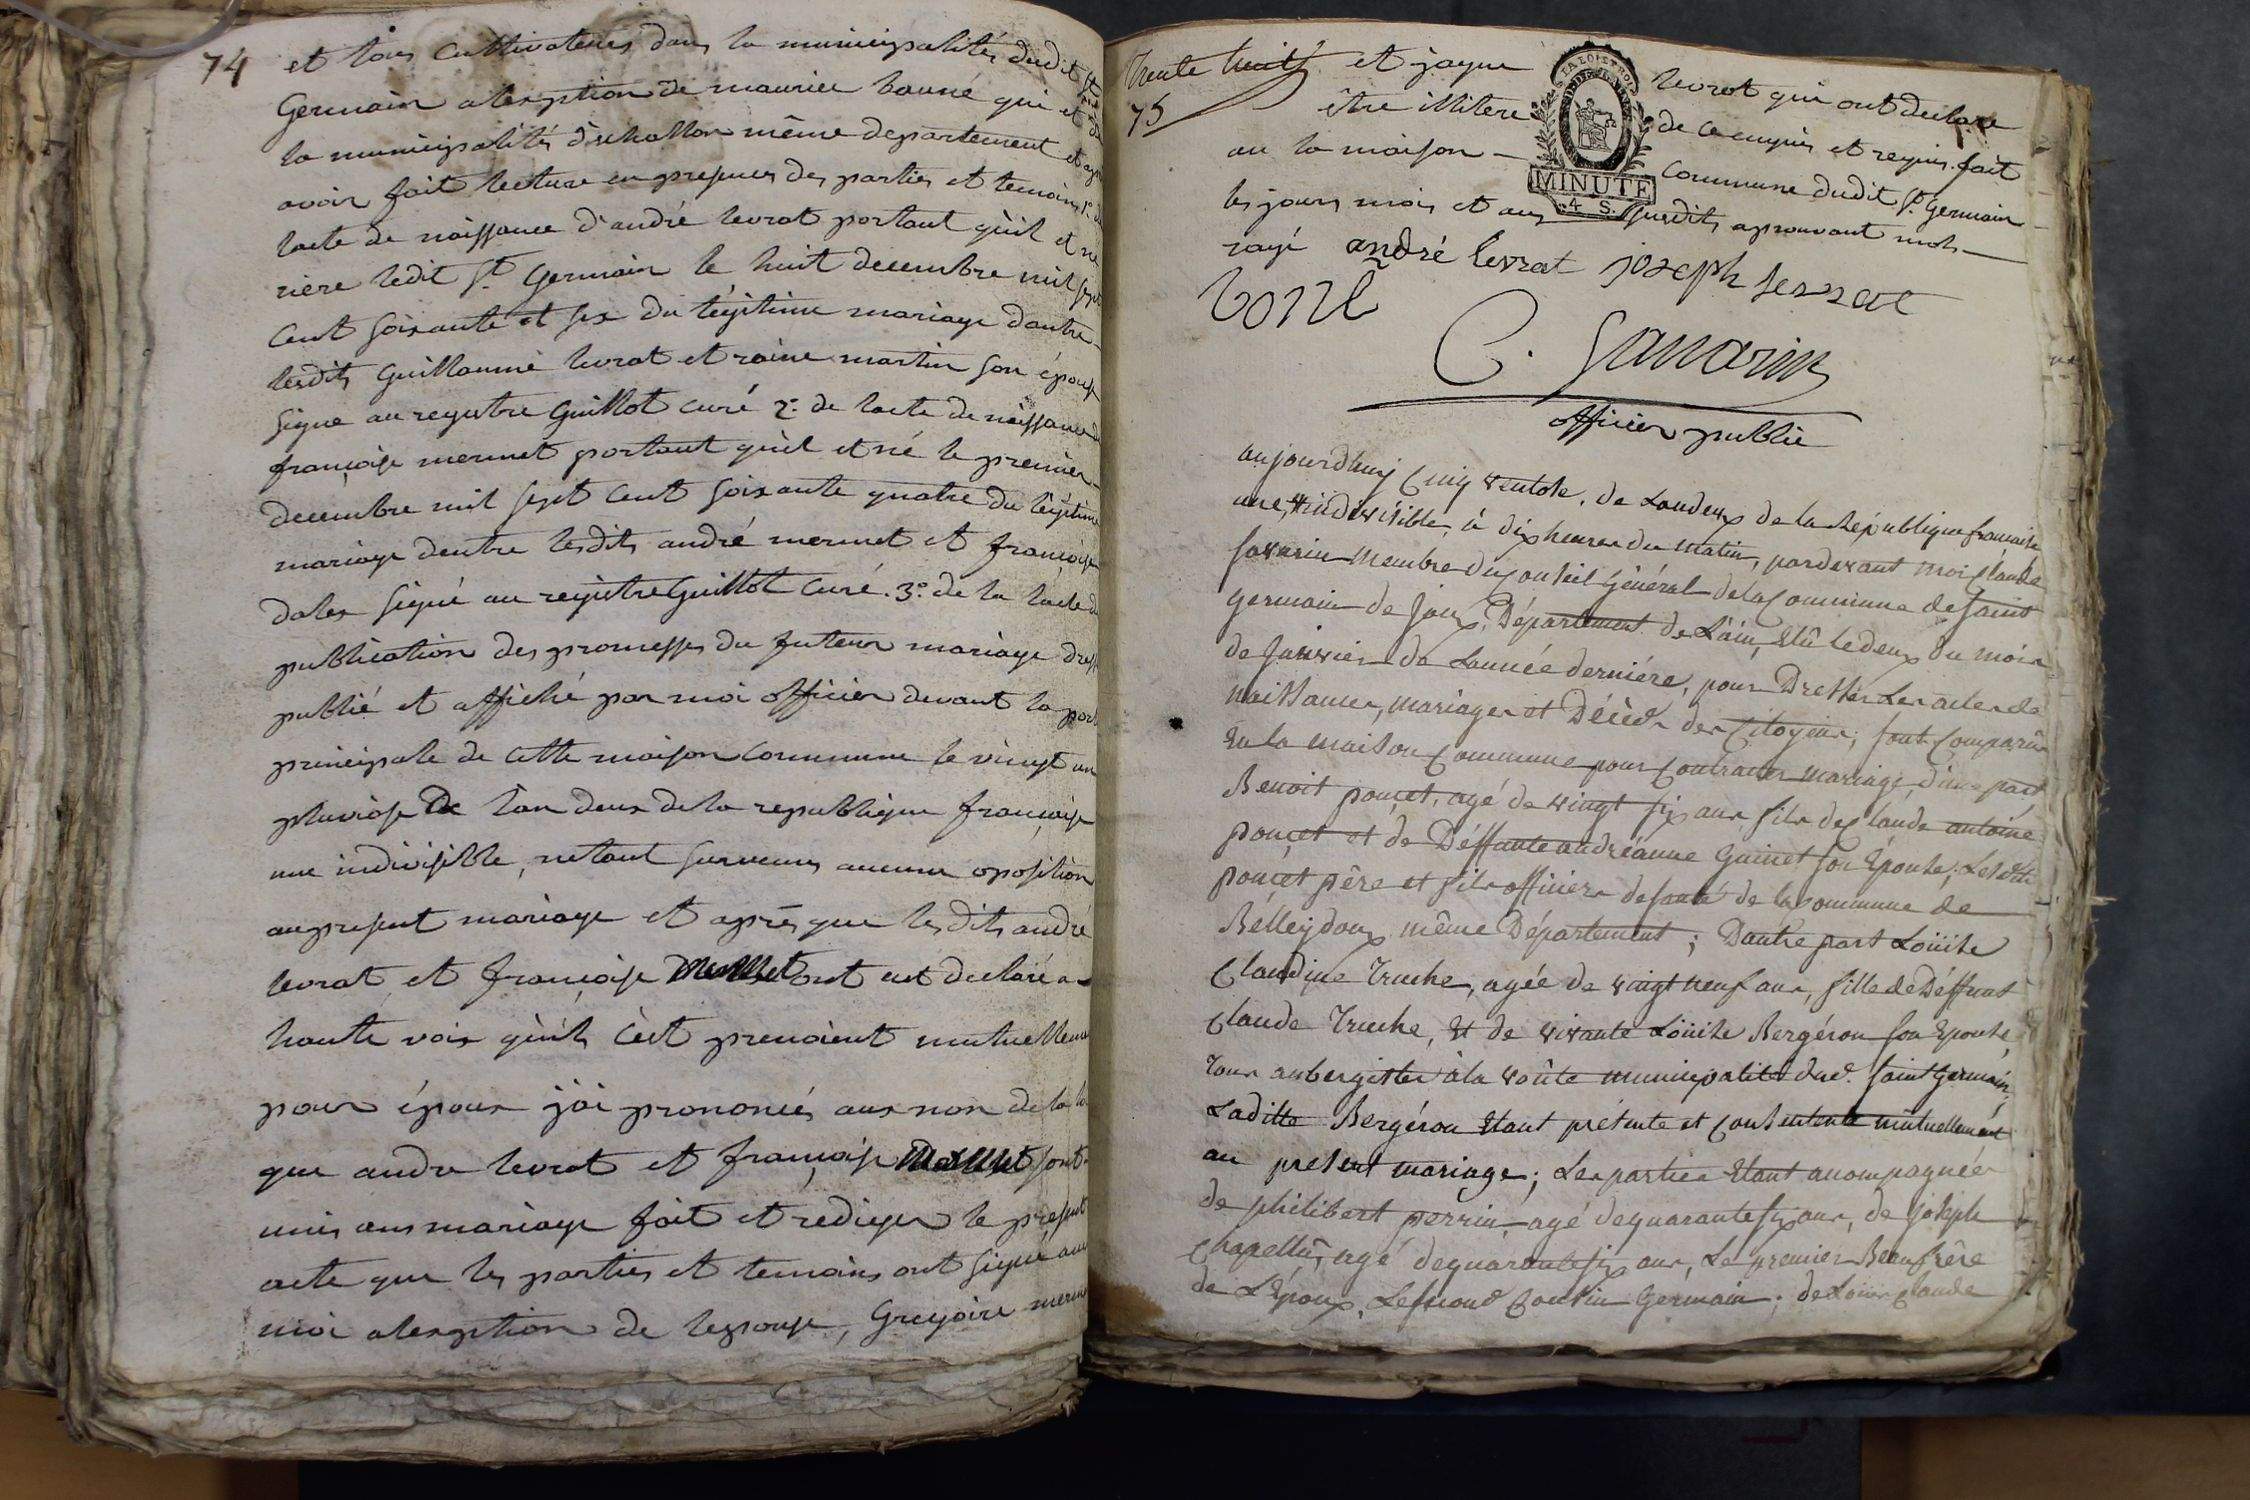 74
et tous cultivateurs dans la municipalités dudit st
Germain alexption de maurice bonné qui et de
la municipalités d'echallon même departement et apres
avoir fait lecture en presence des parties et temoins 1° de
lacte de naissance d'andré levrat portant qu'il et né
riere ledit st Germain le huit decembre mil sept
cent soixante et six du légitime mariage dantre
lesdits Guillaume levrat et raine martin son épouse
signe au registre Guillot curé 2° de lacte de naissance de
françoise mermet portant qu'el et né le premier
decembre mil sept cent soixante quatre du légitime
mariage dentre lesdits andré mermet et françoise
dales signé au registre Guillot curé. 3° de la lacte de
publication des promesses du futeur mariage dressé
publié et affiché par moi officier devant la porte
principale de cette maison commune le vingt un
pluviose De lan deux de la republique françoise
une indivisible, netant survenus aucune oposition
au present mariage et après que lesdits andré
levrat et françoise mermet ont eut declaré a
haute voix qu'ils cest prenoient mutuellement
pour époux jai prononcés aux non de la loi
que andre levrat et françoise mermet sont
unis ans mariage fait et rediger le present
acte que les parties et temoins ont signé avec
moi alexption de lepouse, Gregoire mermet
trente huit
75
et jaque levrat qui ont declare
être illitere de ce enquis et requis. fait
an la maison commune dudit st Germain
les jours mois et ans susdits aprouvant mots
rayé andré levrat joseph sesrat
boné
LA LOI ET ROI
MINUTE
4 S.
C. Savarin
officier public
aujourdhuy Cinq ventose, de Landeux de la République francaise
une, et indivisible, à dix heures du matin, pardevant moi Claude
Savarin membre du Conseil Général de la Commune de Saint
germain de Joux, Département de L'ain, Elû le deux du mois
de Janvier de Lannée derniére, pour Dresser Les actes de
naissances, mariages et Décèds des Citoyens; sont Comparûs
En la maison Commune pour Contracter mariage, d'une part
Benoit ponçet, agé de vingt six ans, fils de Claude antoine
ponçet et de Déffunte andréanne Guinet son Epouse; Lesdits
ponçet pêre et fils officiers de santé de la Commune de
Bélleydoux même Département; Dautre part Loüise
Claudine Truche, agée de vingt neuf ans, fille de Déffunt
Claude Truche, Et de vivante Loüise Bergéron son Epouse
Tous aubergistes à la voûte municipalité dud. Saint Germain,
Laditte Bergéron Etant présente et Consentente mutuellement
au présent mariage; Les parties Etant accompagnées
de philibert perrin, agé de quarante six ans, de joseph
Chapellû, agé de quarante six ans, Le premier Beaufrêre
de L'Epoux, Lesecond Cousin Germain; de Loüis Claude